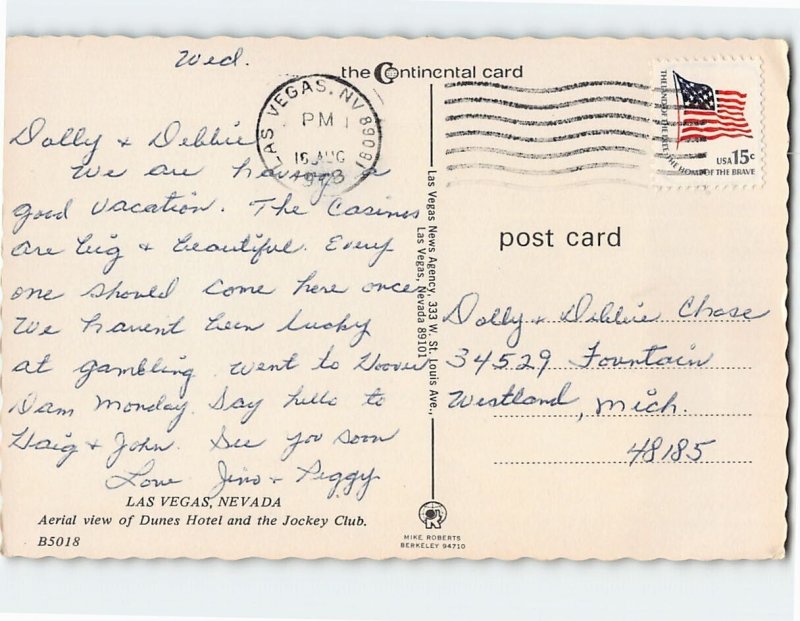 Wed.
the Continental card
LAS VEGAS, NV
PM
16 AUG
1978
THE LAND OF THE FREE, THE HOME OF THE BRAVE
USA 15c
Dolly & Debbie
We are having a
good vacation. The Casinos
are big & beautiful. Every
one should come here once
We havent been lucky
at gambling. Went to Hoover
Dam Monday. Say hello to
Haig & John. See you soon
Love Jim & Peggy
LAS VEGAS, NEVADA
Aerial view of Dunes Hotel and the Jockey Club.
B5018
Las Vegas News Agency, 333 W. St. Louis Ave.,
Las Vegas, Nevada 89101
MIKE ROBERTS
BERKELEY 94710
post card
Dolly & Debbie Chase
34529 Fountain
Westland, Mich.
48185